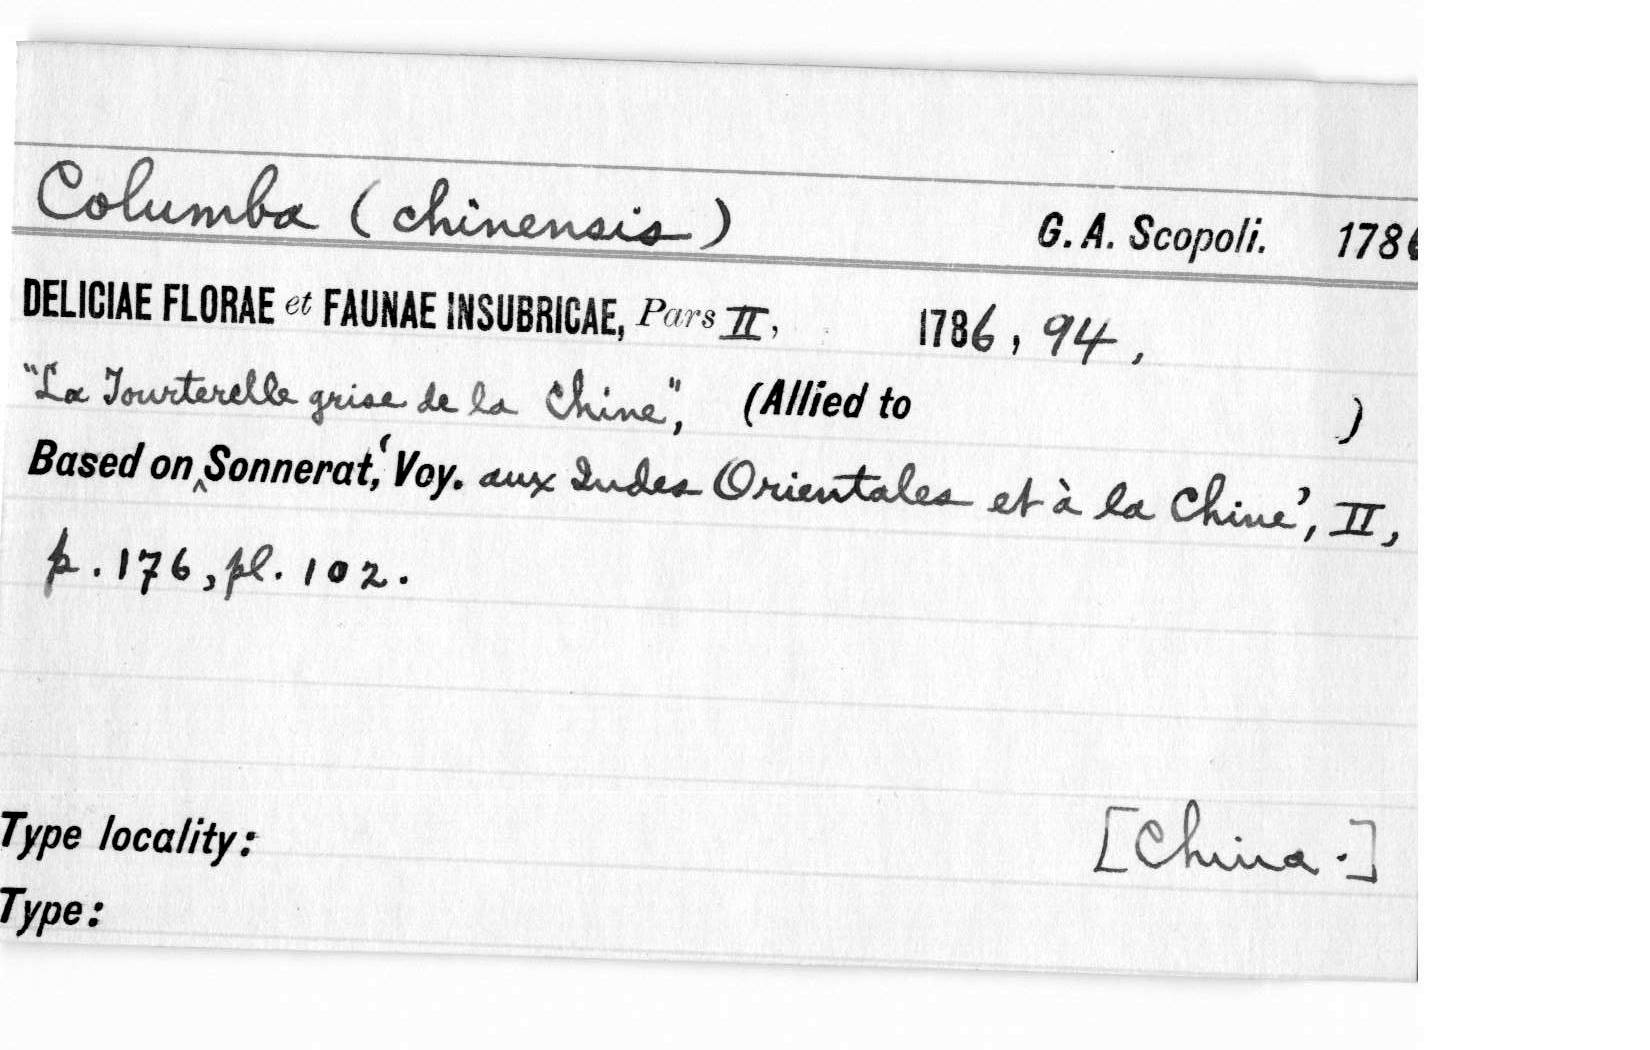 Columba (chinensis) G. A. Scopoli. 1786
DELICIAE FLORAE et FAUNAE INSUBRICAE, Pars II, 1786, 94,
"La Tourterelle grise de la Chine", (Allied to )
Based on ‸ Sonnerat, 'Voy. aux Indes Orientales et à la Chine', II,
p. 176, pl. 102.
Type locality: [China.]
Type: